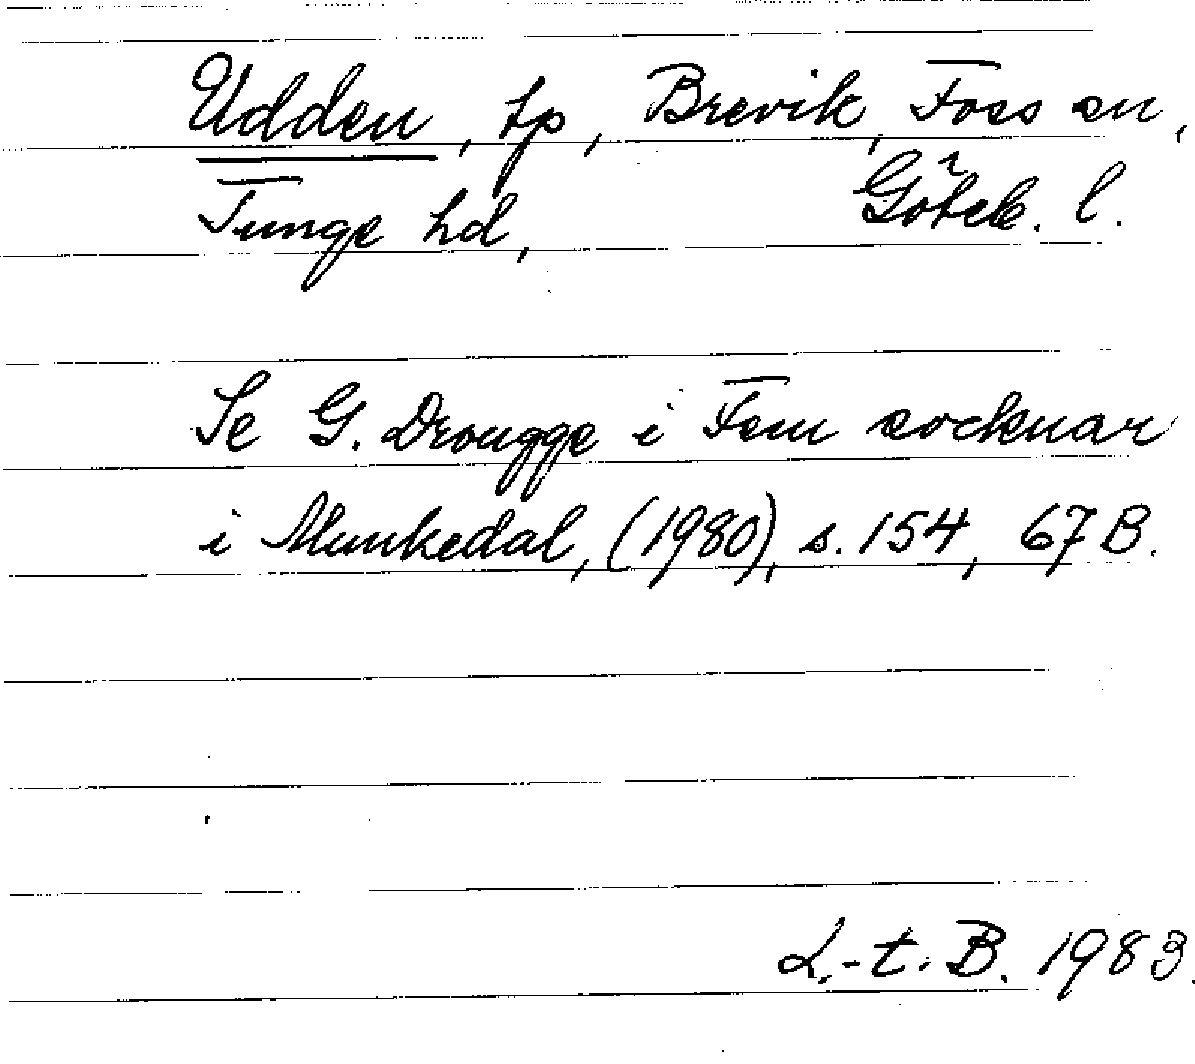 Udden, tp, Brevik, Foss sn,
Tunge hd, Göteb. l.
Se G. Drougge i Fem socknar
i Munkedal, (1980), s. 154, 67B.
L.-t. B. 1983.